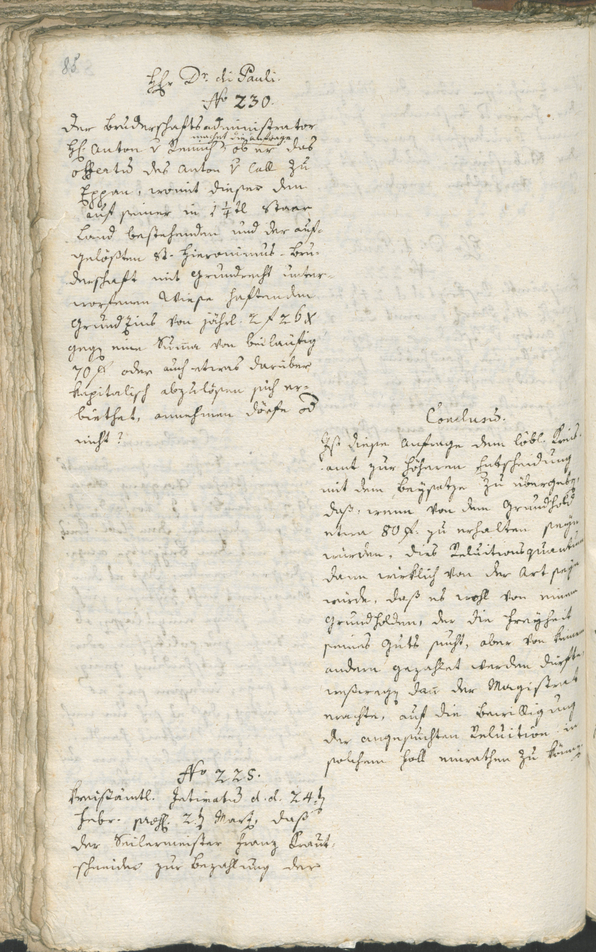 85
Hr Dr. di Pauli.
No 230.
Der Bruderschaftsadministrator
machet die anfrage
H. Anton v Remich, ob er das
offertum des Anton v Call zu
Eppan, womit dieser den
auf seiner in 1 1/4 tl Staar
Land bestehenden und der auf-
gelößten St. Hieronimus-Bru-
derschaft mit Grundrecht unter-
worfenen Wiese haftenden
Grundzins von jährl. 2 f 26 x
gegen eine Summa von beiläufig
70 f oder auch etwas darüber
kapitalisch abzulösen sich er-
biethet, annehmen dörfe od
nicht?
Conclusum.
Ist diese Anfrage dem löbl. Kreis-
amt zur höheren Entscheidung
mit dem Beysatze zu übergeben,
daß, wenn von dem Grundhold
etwa 80 f. zu erhalten seyn
würden, dies Reluitionsquantum
dann wirklich von der Art seyn
würde, daß es wohl von einem
Grundholden, der die Freyheit
seines Guts sucht, aber von keinem
andern gezahlet werden dürfte,
weßwegen dan der Magistrat
erachte, auf die Bewilligung
der angesuchten Reluition in
solchem Fall einrathen zu können.
No 225.
Kreisämtl. Intimatum d. d. 24t
Febr. praes. 2t Marz, daß
der Seilermeister Franz Kraut-
schneider zur Bezahlung der